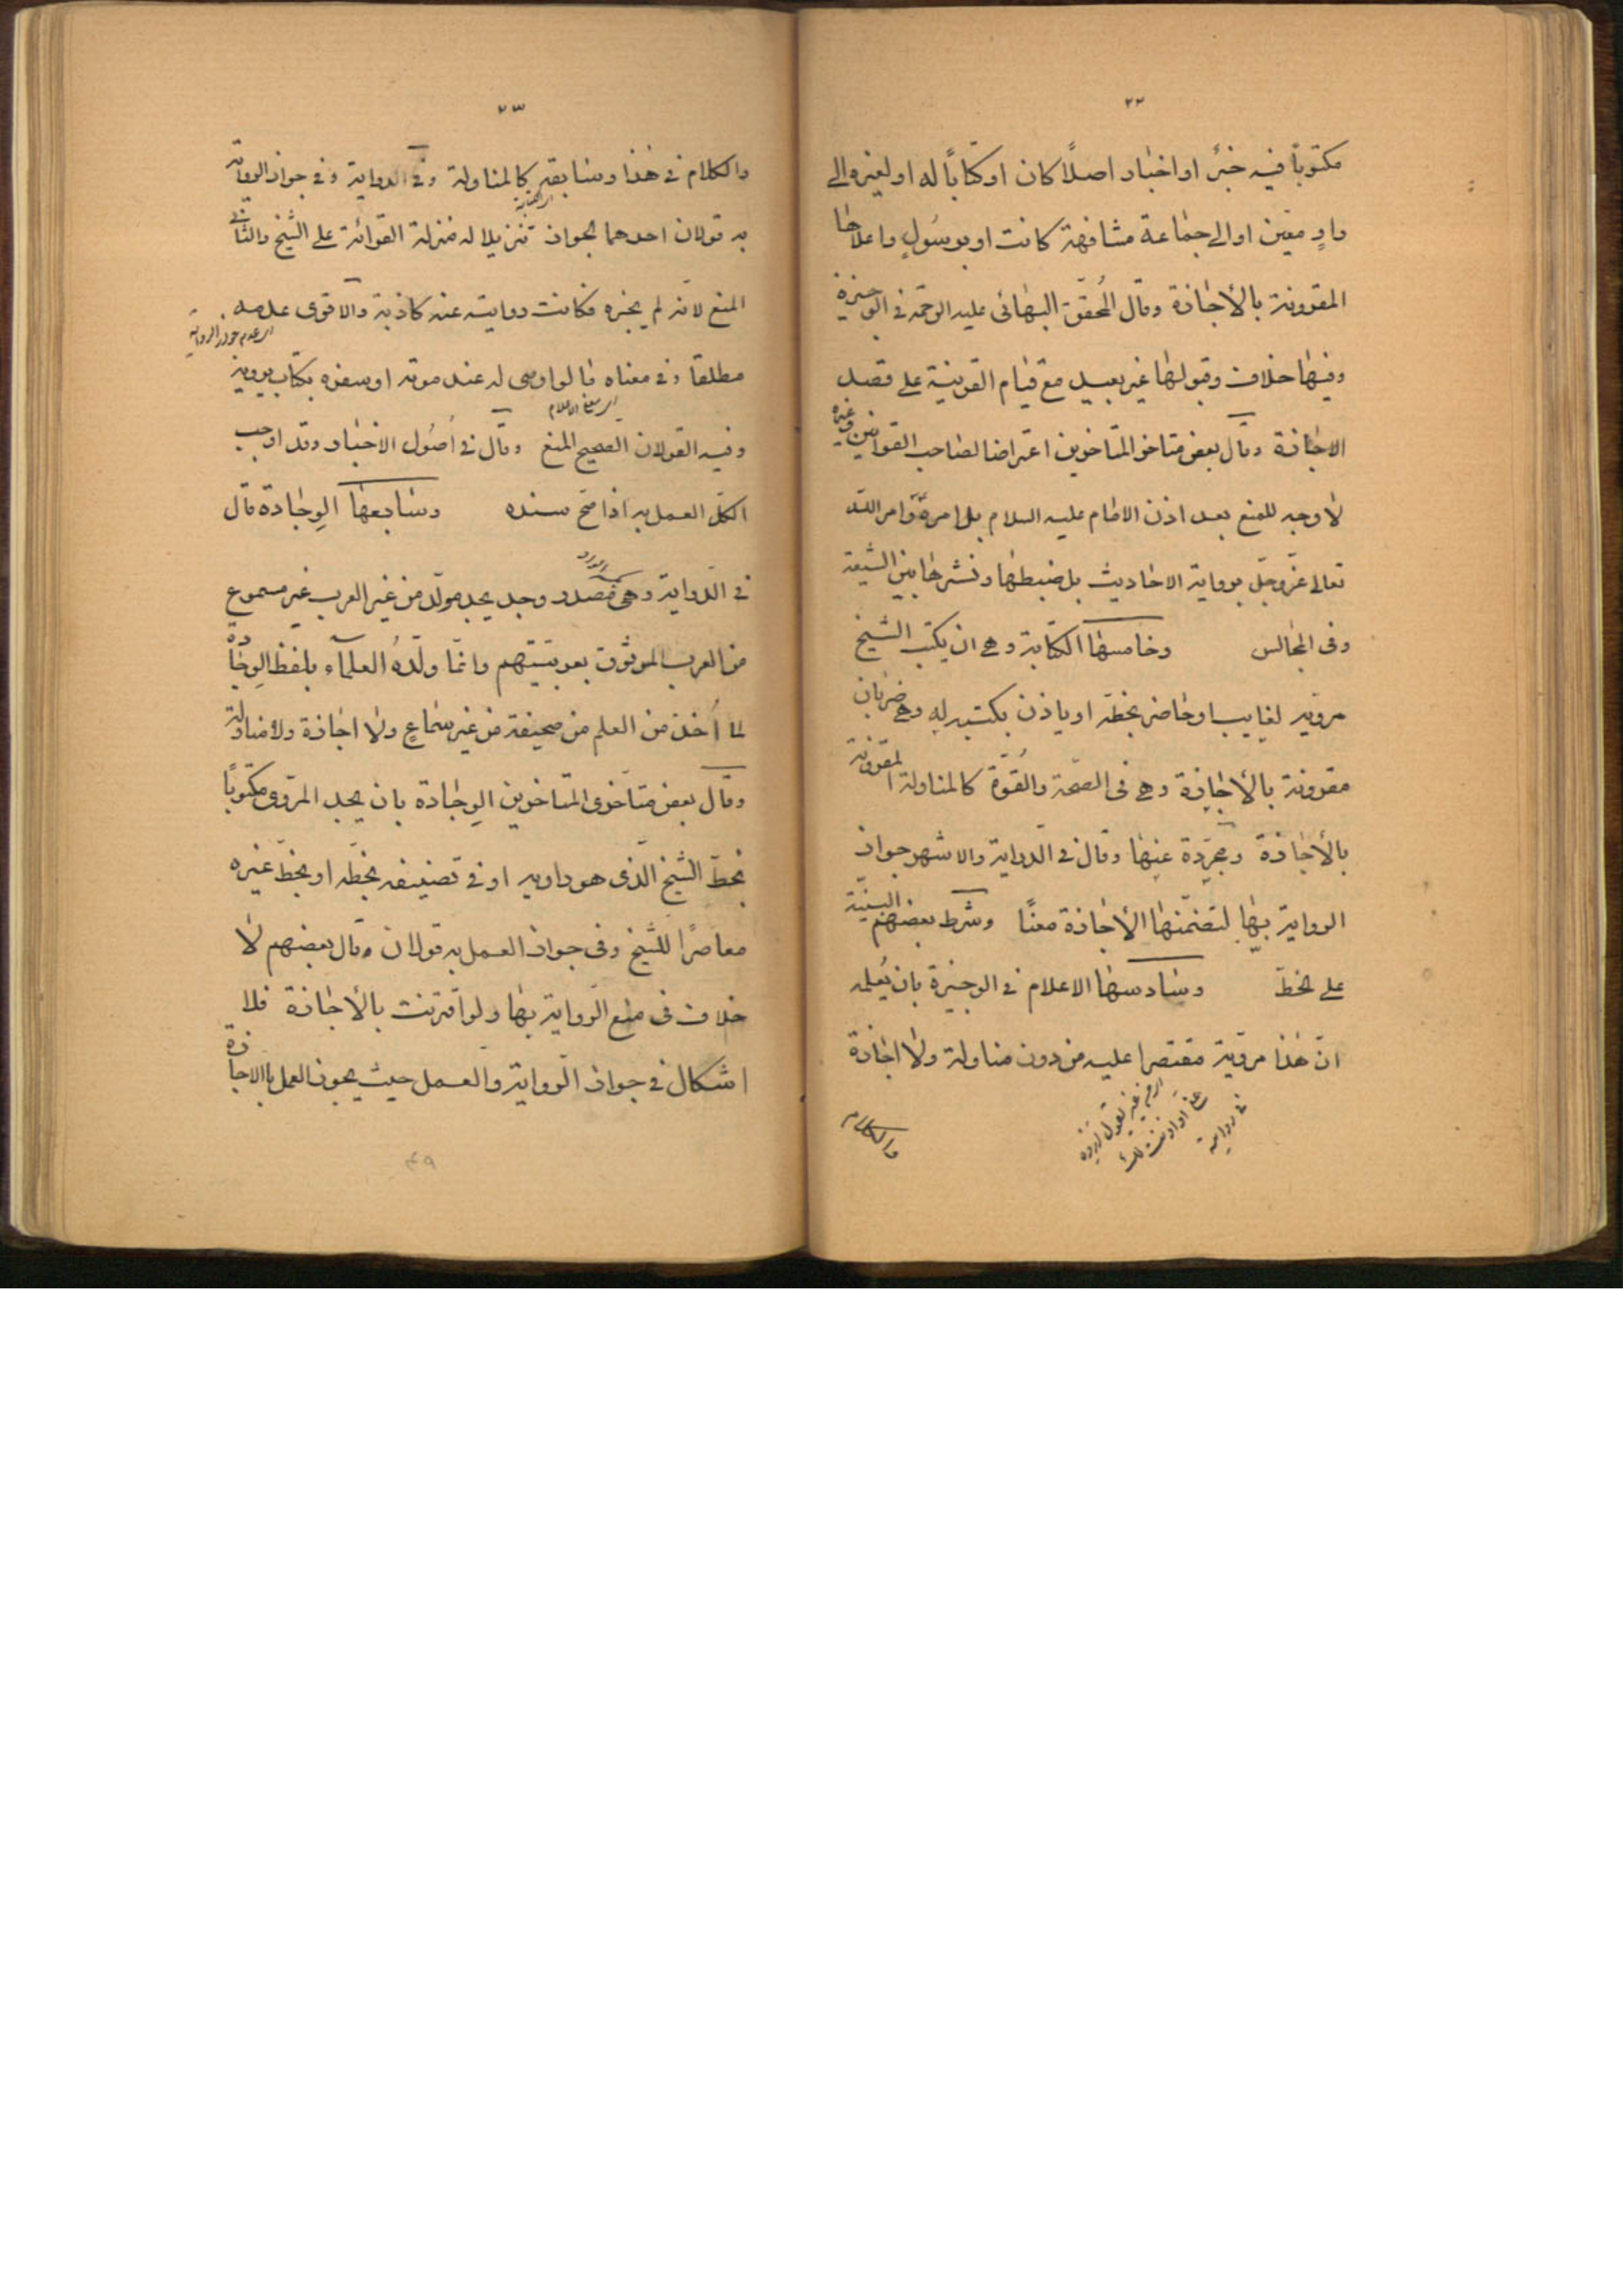 ٢٢
مكتوباً فيه خبرٌ او اخبار اصلًا كان او كتاباً له او لغيره الى
راوٍ معيّن او الى جماعة مشافهة كانت او برسُولٍ واعلاها
المقرونة بالأجازة وقال المُحقّق البهائى عليه الرحمة فى الوجيزة
وفيها خلاف وقبولها غير بعيد مع قيام القرينة على قصد
الاجازة وقال بعض متاخر المتاخرين اعتراضا لصاحب القوانين وغيره
لا وجه للمنع بعد اذن الامام عليه السلام بل امره وامر الله
تعالى عزّ وجلّ برواية الاحاديث بل ضبطها ونشرها بين الشيعة
وفى المجالس وخامسها الكتابة وهى ان يكتب الشيخ
مرويه لغايب او حاضر بخطه او ياذن بكتبه له وهى ضربان
مقرونة بالأجازة وهى فى الصحّة والقُوّة كالمناولة المقرونة
بالأجازة ومجرّدة عنها وقال فى الدراية والاشهر جواز
الرواية بها لتضمّنها الأجازة معنًا وشرط بعضهم البينة
على الخطّ وسادسها الاعلام فى الوجيزة بان يُعلمه
انّ هذا مرويّه مقتصرا عليه من دون مناولة ولا اجازة
والكلام
٢٣
والكلام فى هذا وسابقه كالمناولة وفى الدراية وفى جواز الرواية
به قولان احدهما الجواز تنزيلا له منزلة القرائة على الشيخ والثانى
المنع لانّه لم يجزه فكانت روايته عنه كاذبة والاقوى عدمه
اى عدم جواز الرواية
مطلقا وفى معناه ما لو اوصى له عند موته او سفره بكتاب يرويه
اى معنى الاعلام
وفيه القولان الصحيح المنع وقال فى اُصُول الاخبار وقد اوجب
الكلّ العمل به اذا صحّ سنده وسابعها الوِجادة قال
فى الدراية وهى مصدر وجد يجد مولّد من غير العرب غير مسموع
من العرب الموثوق بعربيّتهم وانما ولّدهُ العلمآء بلفظ الوِجادة
لما اُخذ من العلم من صحيفة من غير سماع ولا اجازة ولا مناولة
وقال بعض متاخرى المتاخرين الوِجادة بان يجد المروى مكتوبًا
بخطّ الشيخ الّذى هو راويه او فى تصنيفه بخطّه او بخطّ غيره
معاصرًا للشيخ وفى جواز العمل به قولان وقال بعضهم لا
خلاف فى منع الرّواية بها ولو اقترنت بالأجازة فلا
اشكال فى جواز الرّواية والعمل حيث يجوز العمل بالاجازة
٤٩